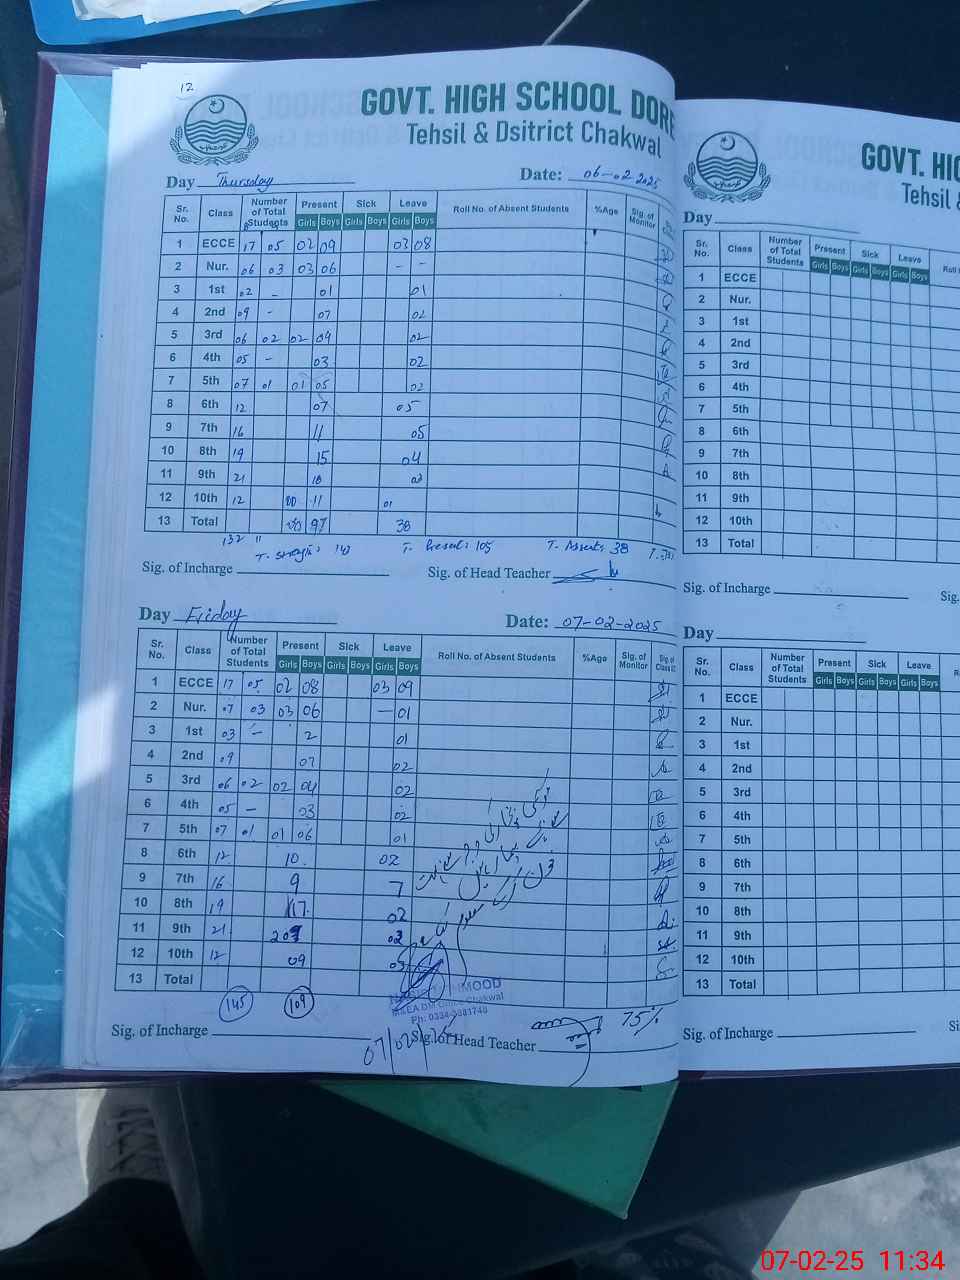 12
GOVT. HIGH SCHOOL DORE
Tehsil & Dsitrict Chakwal
Day Thursday Date: 06-02-2025
Sr. No. Class Number of Total Students Present Sick Leave Roll No. of Absent Students %Age Sig. of Monitor
Girls Boys Girls Boys Girls Boys
1 ECCE 17 05 02 09 03 08
2 Nur. 06 03 03 06 - -
3 1st 02 - 01 01
4 2nd 09 - 07 02
5 3rd 06 02 02 04 02
6 4th 05 - 03 02
7 5th 07 01 01 05 02
8 6th 12 07 05
9 7th 16 11 05
10 8th 19 15 04
11 9th 21 18
12 10th 12 11 01
13 Total 97 38
132 11
T. Strength: 143 T. Present: 105 T. Absent: 38
Sig. of Incharge Sig. of Head Teacher
Day Friday Date: 07-02-2025
Sr. No. Class Number of Total Students Present Sick Leave Roll No. of Absent Students %Age Sig. of Monitor Sig. of
Girls Boys Girls Boys Girls Boys
1 ECCE 17 05 02 08 03 09
2 Nur. 07 03 03 06 - 01
3 1st 03 - 2 01
4 2nd 09 07 02
5 3rd 06 02 02 04 02
6 4th 05 - 03 02
7 5th 07 01 01 06 01
8 6th 12 10 02
9 7th 16 9 7
10 8th 19 17 02
11 9th 21
12 10th 12 09 03
13 Total
145 109
MOOD
M&EA DM Office Chakwal
Ph: 0334-5881748
75%
Sig. of Incharge Sig. of Head Teacher
07/02/25
GOVT. HIG
Tehsil &
Day
Sr. No. Class Number of Total Students Present Sick Leave Roll
Girls Boys Girls Boys Girls Boys
1 ECCE
2 Nur.
3 1st
4 2nd
5 3rd
6 4th
7 5th
8 6th
9 7th
10 8th
11 9th
12 10th
13 Total
Sig. of Incharge Sig.
Day
Sr. No. Class Number of Total Students Present Sick Leave
Girls Boys Girls Boys Girls Boys
1 ECCE
2 Nur.
3 1st
4 2nd
5 3rd
6 4th
7 5th
8 6th
9 7th
10 8th
11 9th
12 10th
13 Total
Sig. of Incharge Sig
07-02-25 11:34